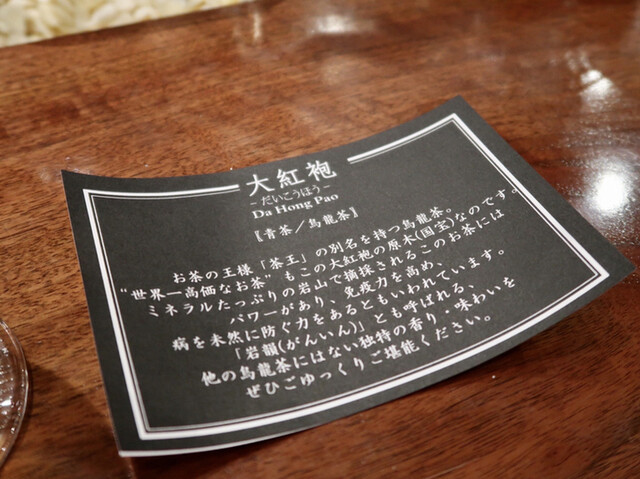 大紅袍
−だいこうほう−
Da Hong Pao
〖青茶／烏龍茶〗
お茶の王様「茶王」の別名を持つ烏龍茶。
"世界一高価なお茶、もこの大紅袍の原木(国宝)なのです。
ミネラルたっぷりの岩山で摘採されるこのお茶には
パワーがあり、免疫力を高め、
病を未然に防ぐ力をあるともいわれています。
「岩韻(がんいん)」とも呼ばれる、
他の烏龍茶にはない独特の香り・味わいを
ぜひごゆっくりご堪能ください。